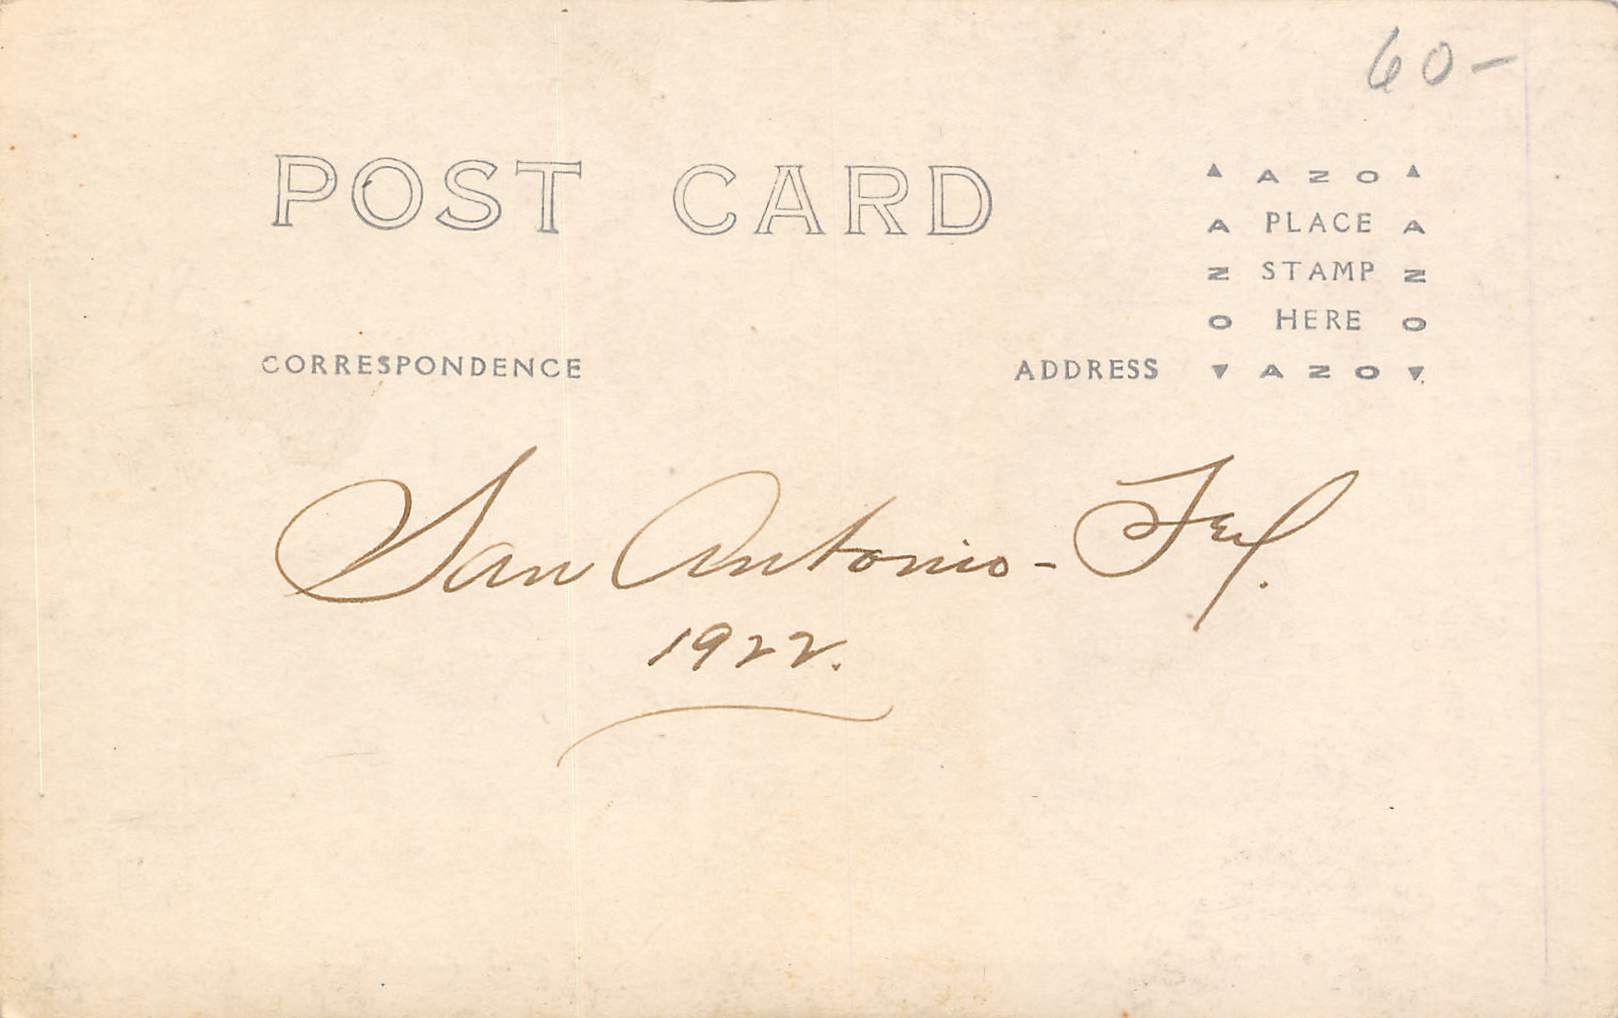 60-
POST CARD
AZO
A PLACE A
Z STAMP Z
O HERE O
AZO
CORRESPONDENCE
ADDRESS
San Antonio - Tex.
1922.